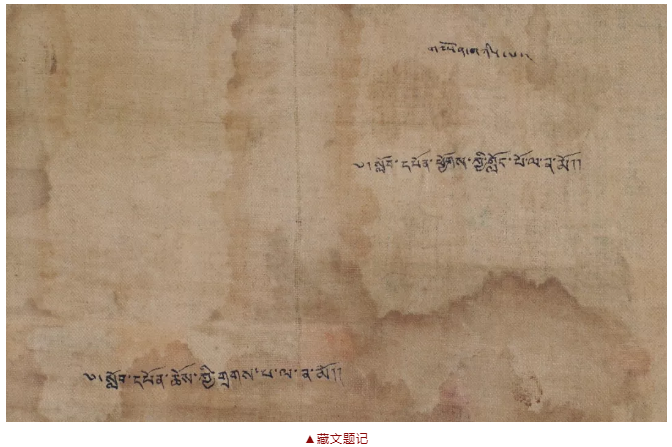 ༄། སློབ་དཔོན་ཕྱོགས་ཀྱི་གློང་པོ་ལ་ན་མོ།།
༄། སློབ་དཔོན་ཆོས་ཀྱི་གྲགས་པ་ལ་ན་མོ།།
▲藏文题记